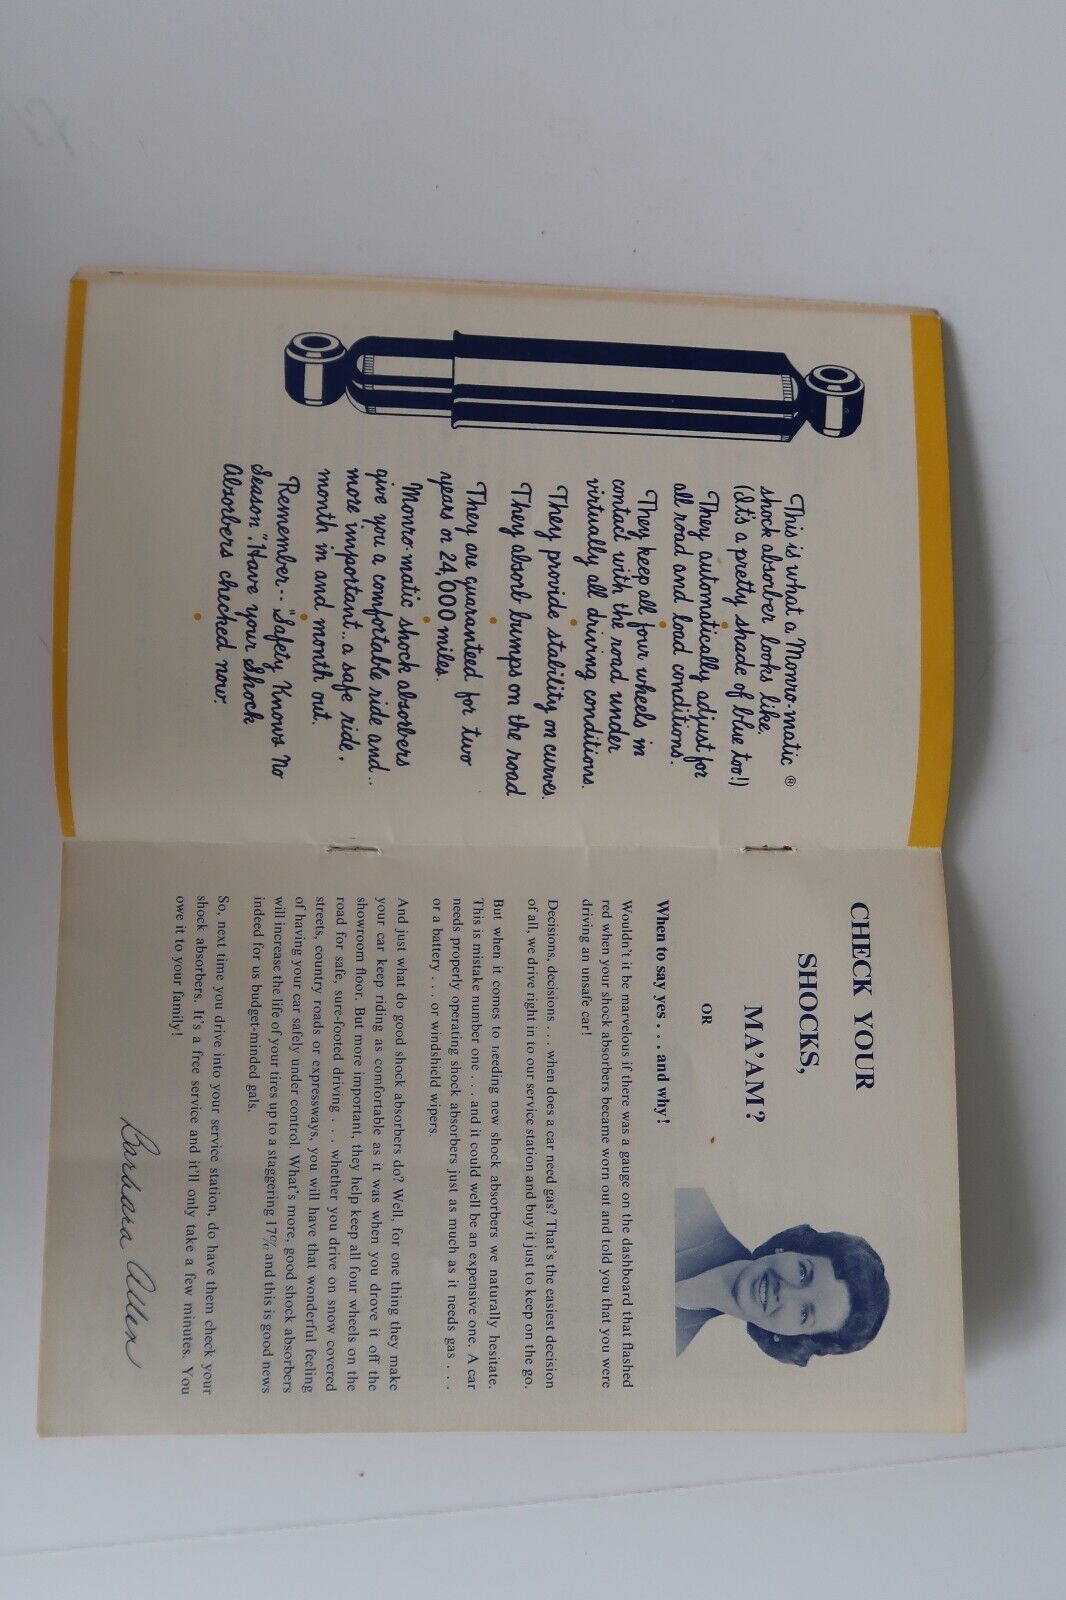 This is what a Monro-matic ®
shock absorber looks like,
(It's a pretty shade of blue too!)
They automatically adjust for
all road and load conditions.
They keep all four wheels in
contact with the road under
virtually all driving conditions.
They provide stability on curves.
They absorb bumps on the road
They are guaranteed for two
years or 24,000 miles.
Monro-matic shock absorbers
give you a comfortable ride and..
more important.. a safe ride,
month in and month out.
Remember -- "Safety Knows No
Season." Have your Shock
Absorbers checked now.
CHECK YOUR
SHOCKS,
MA'AM?
OR
When to say yes . . . and why!
Wouldn't it be marvelous if there was a gauge on the dashboard that flashed
red when your shock absorbers became worn out and told you that you were
driving an unsafe car!
Decisions, decisions . . . when does a car need gas? That's the easiest decision
of all, we drive right in to our service station and buy it just to keep on the go.
But when it comes to needing new shock absorbers we naturally hesitate.
This is mistake number one . . . and it could well be an expensive one. A car
needs properly operating shock absorbers just as much as it needs gas . . .
or a battery . . . or windshield wipers.
And just what do good shock absorbers do? Well, for one thing they make
your car keep riding as comfortable as it was when you drove it off the
showroom floor. But more important, they help keep all four wheels on the
road for safe, sure-footed driving . . . whether you drive on snow covered
streets, country roads or expressways, you will have that wonderful feeling
of having your car safely under control. What's more, good shock absorbers
will increase the life of your tires up to a staggering 17% and this is good news
indeed for us budget-minded gals.
So, next time you drive into your service station, do have them check your
shock absorbers. It's a free service and it'll only take a few minutes. You
owe it to your family!
Barbara Allen